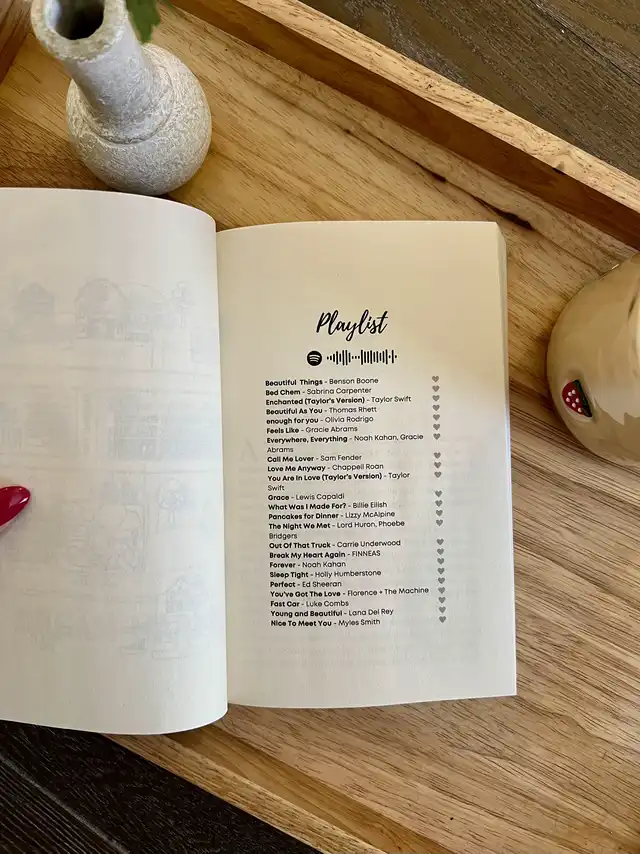 Playlist
Beautiful Things - Benson Boone
Bed Chem - Sabrina Carpenter
Enchanted (Taylor's Version) - Taylor Swift
Beautiful As You - Thomas Rhett
enough for you - Olivia Rodrigo
Feels Like - Gracie Abrams
Everywhere, Everything - Noah Kahan, Gracie
Abrams
Call Me Lover - Sam Fender
Love Me Anyway - Chappell Roan
You Are In Love (Taylor's Version) - Taylor
Swift
Grace - Lewis Capaldi
What Was I Made For? - Billie Eilish
Pancakes for Dinner - Lizzy McAlpine
The Night We Met - Lord Huron, Phoebe
Bridgers
Out Of That Truck - Carrie Underwood
Break My Heart Again - FINNEAS
Forever - Noah Kahan
Sleep Tight - Holly Humberstone
Perfect - Ed Sheeran
You've Got The Love - Florence + The Machine
Fast Car - Luke Combs
Young and Beautiful - Lana Del Rey
Nice To Meet You - Myles Smith